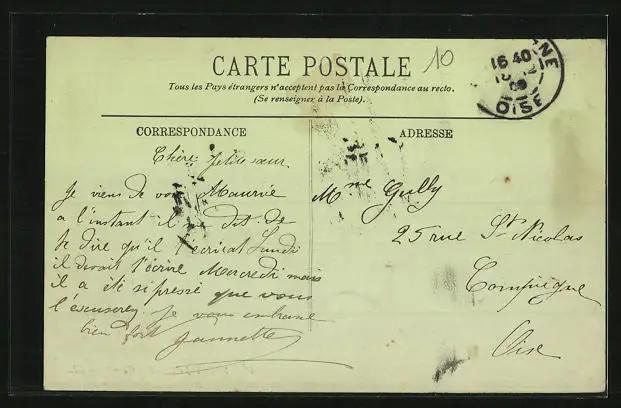 CARTE POSTALE
10
Tous les Pays étrangers n'acceptent pas la Correspondance au recto.
(Se renseigner à la Poste).
16 40
OISE
CORRESPONDANCE
Chère petite sœur
Je viens de voir Maurice
a l'instant il dit de
te dire qu'il t'écrirat Lundi
il devait t'écrire Mercredi mais
il a été si pressé que vous
l'éscuserez je vous embrasse
bien fort Jeannette
ADRESSE
Mme Gully
25 rue St Nicolas
Compiegne
Oise